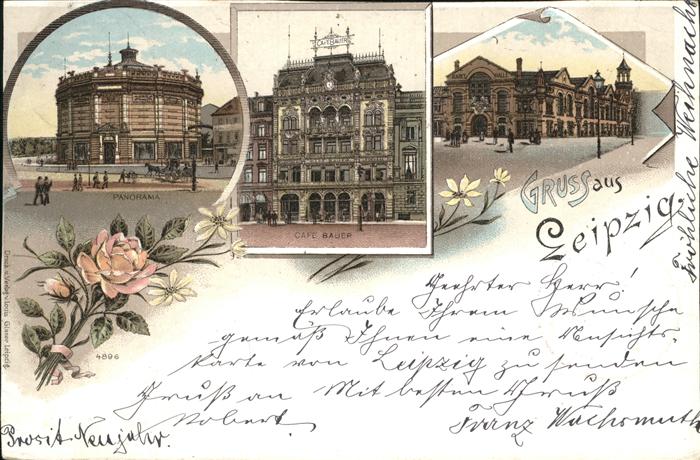 CAFE BAUER
MARKTHALLE
PANORAMA.
CAFE BAUER
GRUSS aus
Leipzig.
Fröhliche Weihnacht
Druck u. Verlag v. Louis Glaser Leipzig.
4896
Geehrter Herr!
Erlaube Ihrem Wunsche
gemäß Ihnen eine Ansichts-
karte von Leipzig zu senden
Gruß an Mit besten Gruß
Robert. Franz Wachsmuth
Prosit Neujahr.